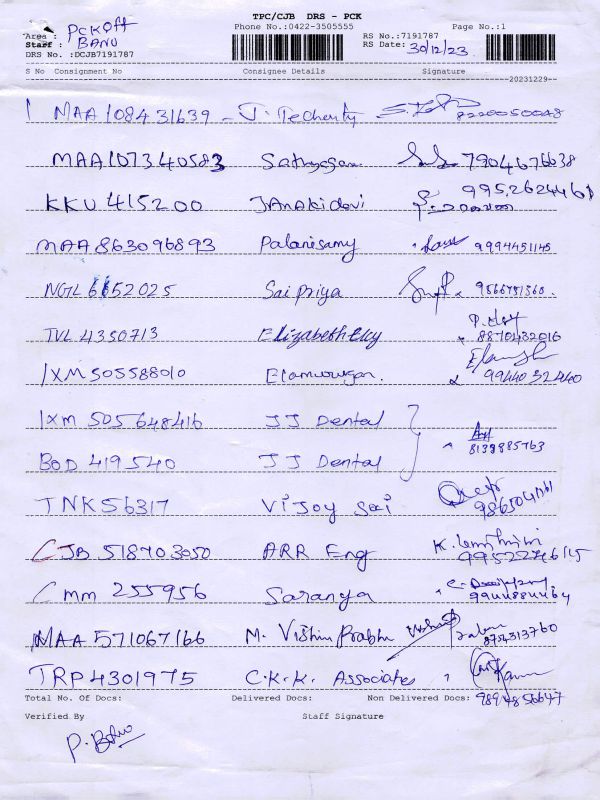 TPC/CJB DRS - PCK
Phone No.:0422-3505555 Page No.:1
Area : PCK OFF
Staff : BANU
RS No.:7191787
RS Date: 30/12/23
DRS No. :DCJB7191787
S No Consignment No Consignee Details Signature
20231229--
1 MAA 108431639 - J. Techcnty 8220050048
MAA107340583 Sathyasam 7904676638
KKU 415200 JANAKi devi 9952624461
MAA 863096893 Palanisamy 9994451145
NGL 6652025 Sai priya 9566751560
TVL 4350713 Elizabeth Elcy 8870432016
IXM 505588010 Elamurugan. 99440324460
IXM 505648416 JJ Dental
BOD 419540 JJ Dental 8139885763
TNK56317 Vijoy Sai
CJB 518703050 ARR Eng 9952276145
Cmm 255956 Saranya 9944884464
MAA 571067166 M. Vishnu Prabhu 8754313760
TRP4301975 C.K.K. Associates 9894856647
Total No. Of Docs: Delivered Docs: Non Delivered Docs:
Verified By Staff Signature
P. Banu